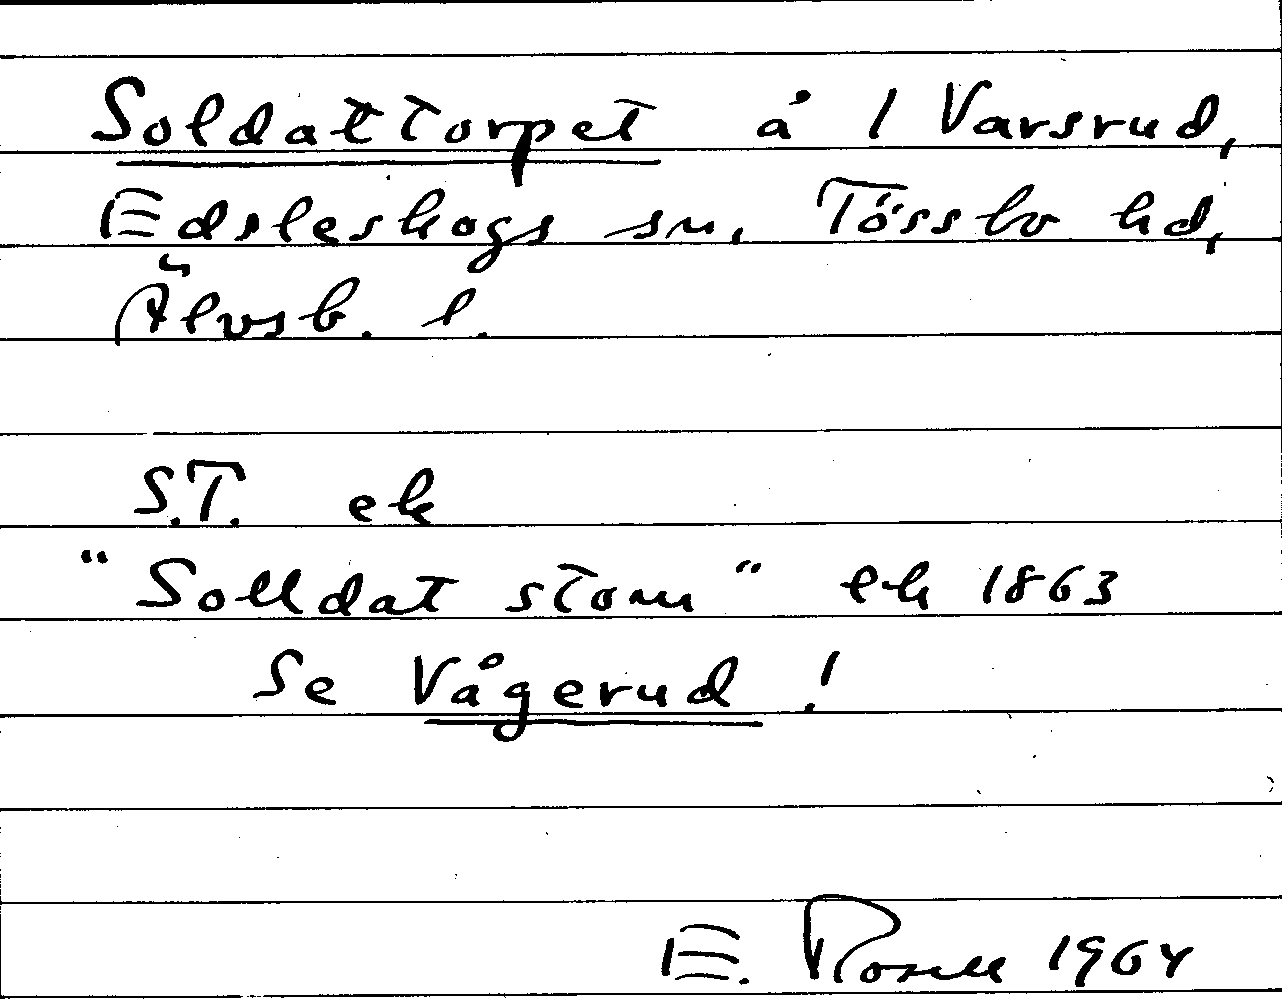 Soldattorpet å 1 Varsrud,
Edsleskogs sn. Tössbo hd,
Älvsb. l.
S.T. ek
"Solldat stom" ek 1863
Se Vågerud!
E. Rosell 1964